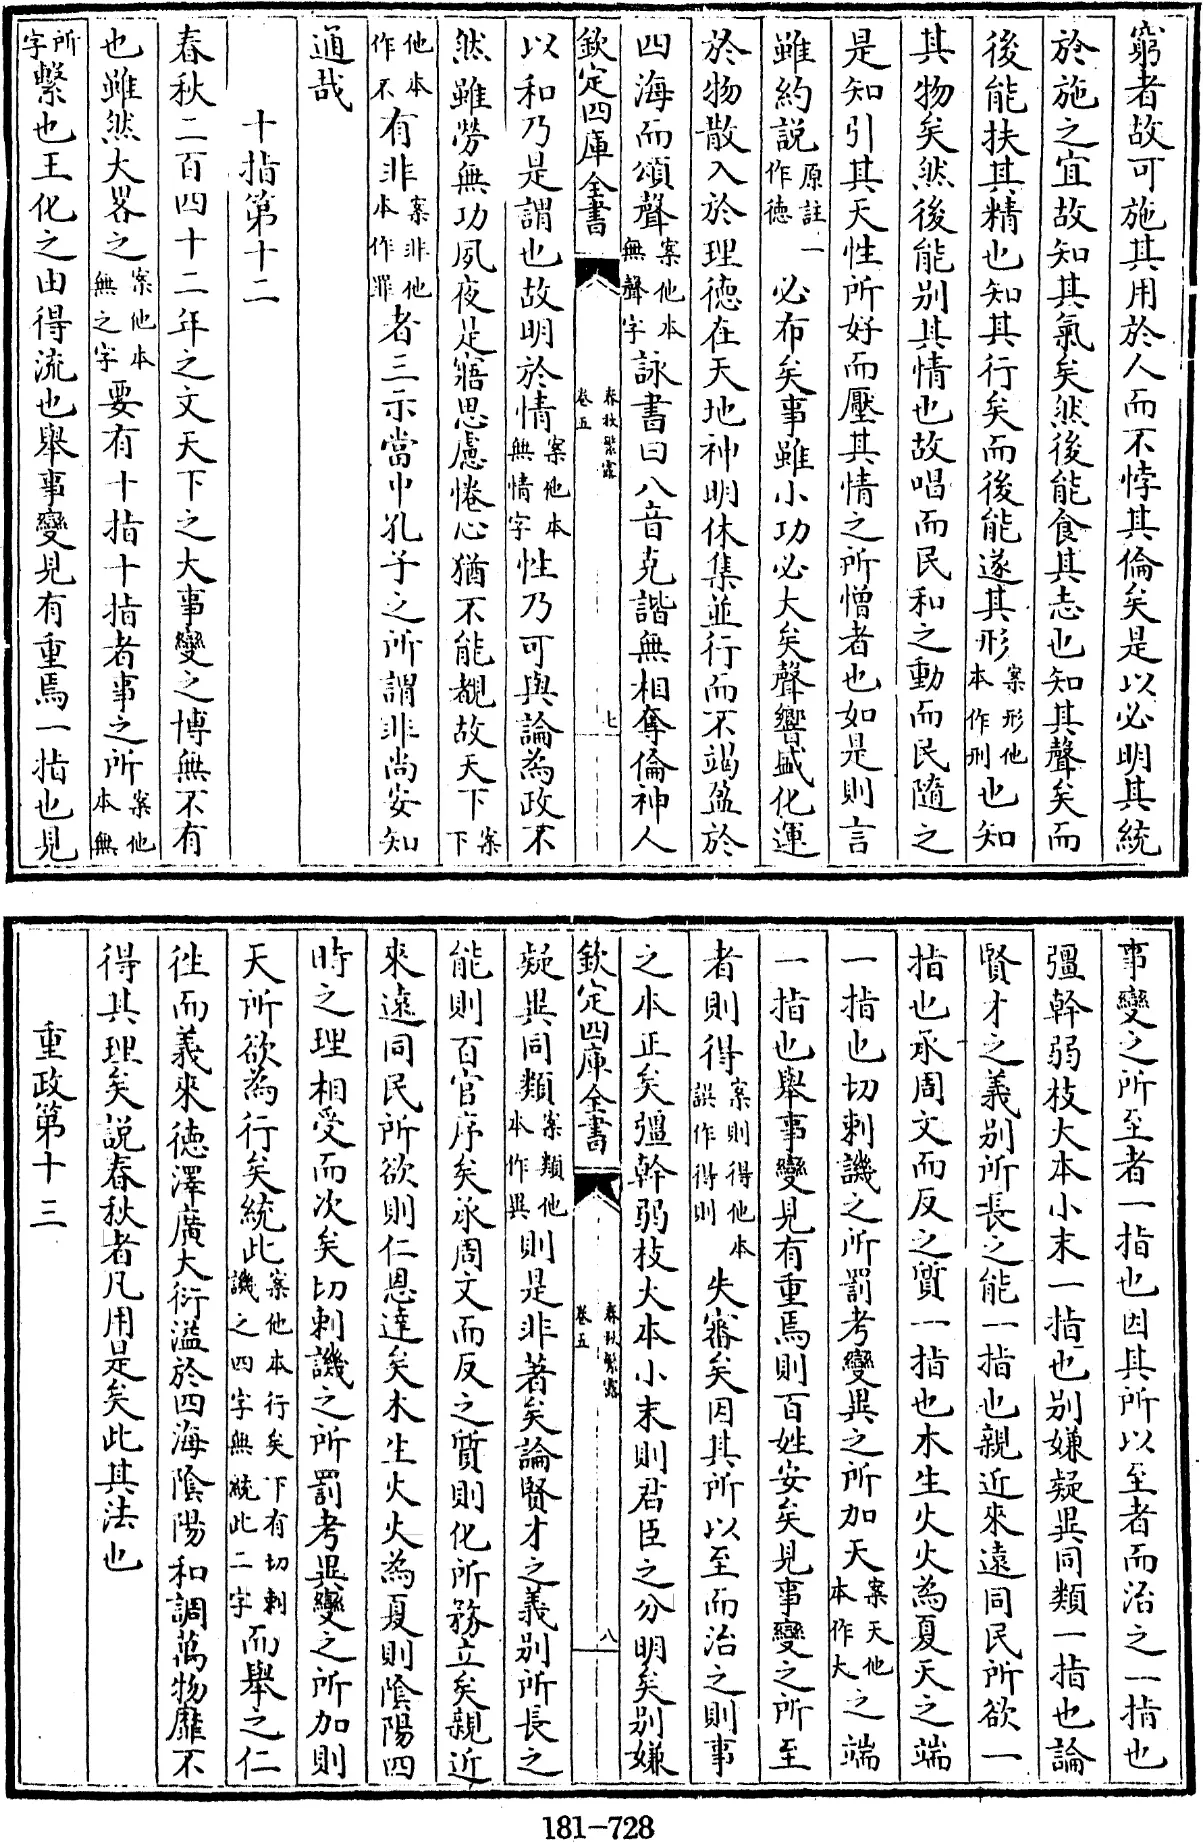 窮者故可施其用於人而不悖其倫矣是以必明其統
於施之宜故知其氣矣然後能食其志也知其聲矣而
後能扶其精也知其行矣而後能遂其形案形他本作刑也知
其物矣然後能別其情也故唱而民和之動而民隨之
是知引其天性所好而壓其情之所憎者也如是則言
雖約説原註一作德必布矣事雖小功必大矣聲響盛化運
於物散入於理德在天地神明休集並行而不竭盈於
四海而頌聲案他本無聲字詠書曰八音克諧無相奪倫神人
欽定四庫全書 春秋繁露 卷五 七
以和乃是謂也故明於情案他本無情字性乃可與論為政不
然雖勞無功夙夜是寤思慮惓心猶不能覩故天下案下
他本作不有非案非他本作罪者三示當中孔子之所謂非尚安知
通哉
十指第十二
春秋二百四十二年之文天下之大事變之博無不有
也雖然大畧之案他本無之字要有十指十指者事之所案他本無
所字繫也王化之由得流也舉事變見有重焉一指也見
事變之所至者一指也因其所以至者而治之一指也
彊幹弱枝大本小末一指也別嫌疑異同類一指也論
賢才之義別所長之能一指也親近來遠同民所欲一
指也承周文而反之質一指也木生火火為夏天之端
一指也切刺譏之所罰考變異之所加天案天他本作大之端
一指也舉事變見有重焉則百姓安矣見事變之所至
者則得案則得他本誤作得則失審矣因其所以至而治之則事
之本正矣彊幹弱枝大本小末則君臣之分明矣別嫌
欽定四庫全書 春秋繁露 卷五 八
疑異同類案類他本作異則是非著矣論賢才之義別所長之
能則百官序矣承周文而反之質則化所務立矣親近
來遠同民所欲則仁恩達矣木生火火為夏則陰陽四
時之理相受而次矣切刺譏之所罰考異變之所加則
天所欲為行矣統此案他本行矣下有切刺譏之四字無統此二字而舉之仁
徃而義來德澤廣大衍溢於四海陰陽和調萬物靡不
得其理矣説春秋者凡用是矣此其法也
重政第十三
181-728